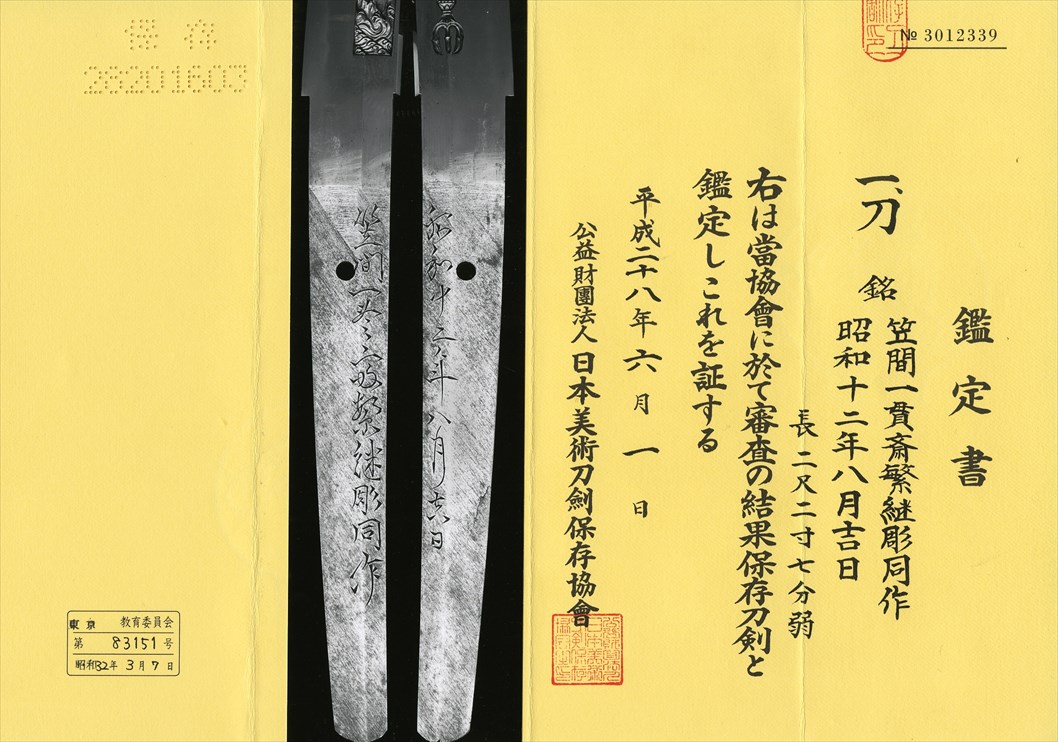 № 3012339
鑑定書
一、刀
銘
笠間一貫斎繁継彫同作
昭和十二年八月吉日
長二尺二寸七分弱
右は當協會に於て審査の結果保存刀剣と
鑑定しこれを証する
平成二十八年六月一日
公益財團法人日本美術刀劍保存協會
昭和十二年八月吉日
笠間一貫斎繁継彫同作
保存
28201603
東京 教育委員会
第 83151 号
昭和32年 3月 7日